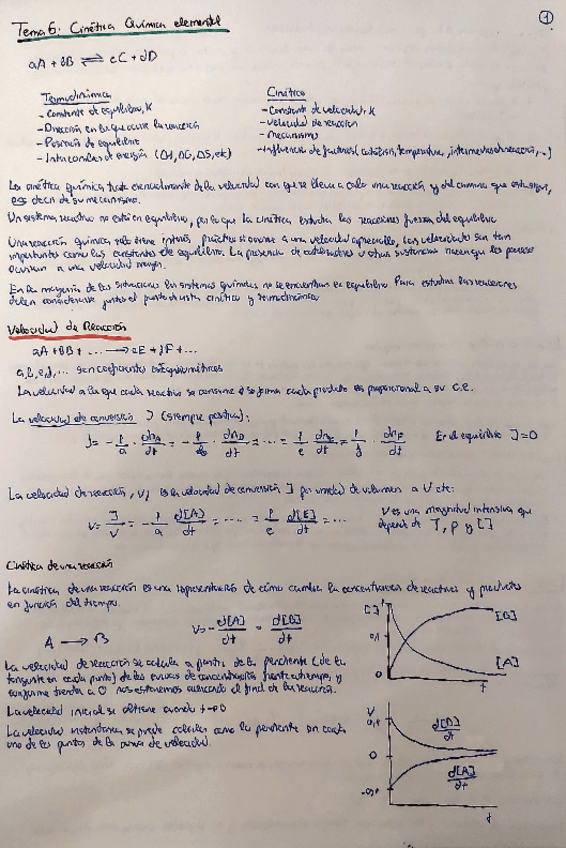 Tema 6: Cinética Química elemental
1
aA + bB ⇌ cC + dD
Termodinámica
- Constante de equilibrio, K
- Dirección en la que ocurre la reacción
- Posición de equilibrio
- Intercambios de energía (ΔH, ΔG, ΔS, etc)
Cinética
- Constante de velocidad, K
- velocidad de reacción
- mecanismo
- Influencia de factores (catálisis, temperatura, intermedios de reacción, ...)
La cinética química trata esencialmente de la velocidad con que se lleva a cabo una reacción y del camino que esta sigue,
es decir de su mecanismo.
Un sistema reactivo no está en equilibrio, por lo que la cinética estudia las reacciones fuera del equilibrio
Una reacción química solo tiene interés práctico si ocurre a una velocidad apreciable, las velocidades son tan
importantes como las constantes de equilibrio. La presencia de catalizadores u otras sustancias hacen que los procesos
ocurran a una velocidad mayor.
En la mayoría de las situaciones los sistemas químicos no se encuentran en equilibrio. Para estudiar las reacciones
deben considerarse juntos el punto de vista cinético y termodinámico
Velocidad de Reacción
aA + bB + ... → eE + fF + ...
a, b, e, f, ... son coeficientes estequiométricos
La velocidad a la que cada reactivo se consume o se forma cada producto es proporcional a su c.e.
La velocidad de conversión J (siempre positiva):
J = - 1/a · dnA/dt = - 1/b · dnB/dt = ... = 1/e · dnE/dt = 1/f · dnF/dt En el equilibrio J = 0
La velocidad de reacción, v, es la velocidad de conversión J por unidad de volumen a V cte:
v = J/V = - 1/a d[A]/dt = .... = 1/e d[E]/dt = ...
V es una magnitud intensiva que
depende de T, P y [ ]
Cinética de una reacción
La cinética de una reacción es una representación de cómo cambia la concentración de reactivos y productos
en función del tiempo.
A → B
V = - d[A]/dt = d[B]/dt
La velocidad de reacción se calcula a partir de la pendiente (de la
tangente en cada punto) de las curvas de concentración frente a tiempo, y
conforme tienda a 0 nos estaremos acercando al final de la reacción.
La velocidad inicial se obtiene cuando t→0
La velocidad instantánea se puede calcular como la pendiente en cada
uno de los puntos de la curva de velocidad.
[ ]
0,1
0
[B]
[A]
t
V
0
d[B]/dt
d[A]/dt
t